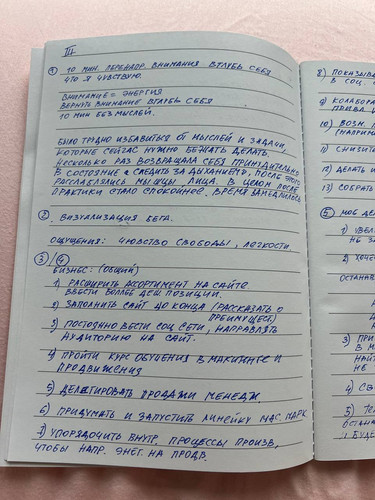 III
① 10 мин. перенапр. внимания вглубь себя
что я чувствую.
внимание = энергия
вернуть внимание вглубь себя
10 мин без мыслей.
было трудно избавиться от мыслей и задачи,
которые сейчас нужно бежать делать,
несколько раз возвращала себя принудительно
в состояние «следить за дыханием», после этого
расслаблялись мышцы лица. В целом после
практики стало спокойнее. Время замедлилось
② Визуализация бега.
Ощущения: чювство свободы, легкости.
③/④
Бизнес: (общий)
1) расширить ассортимент на сайте
ввести более деш. позиции.
2) заполнить сайт до конца (рассказать о
преимущест)
3) постоянно вести соц. сети, направлять
аудиторию на сайт.
4) пройти курс обучения в макитинге и
продвижения
5) делегировать продажи менедж
6) придумать и запустить линейку мас. марк
7) упорядочить внутр. процессы произв,
чтобы напр. энег. на прдв.
8) показыва
в соц.
9) колабора
10) возн.
(наприм
11) снизит
12) делать и
13) собрать
⑤ моё де
1) увел
не за
2) хоче
останав
3) при
в м
найт
не
4) св
5) те
остана
! буд